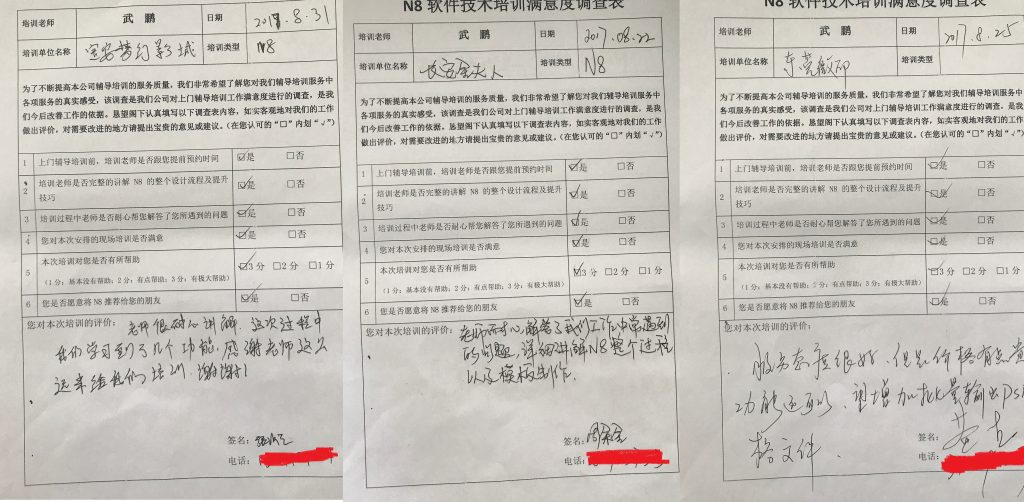 培训老师 武 鹏 日期 2017.8.31
培训单位名称 宝安梦幻影城 培训类型 N8
为了不断提高本公司辅导培训的服务质量，我们非常希望了解您对我们辅导培训服务中
各项服务的真实感受，该调查是我们公司对上门辅导培训工作满意度进行的调查，是我
们今后改善工作的依据。恳望阁下认真填写以下调查表内容，如实客观地对我们的工作
做出评价，对需要改进的地方请提出宝贵的意见或建议。（在您认可的“□”内划“√”）
1 上门辅导培训前，培训老师是否跟您提前预约时间 ☑是 □否
2 培训老师是否完整的讲解 N8 的整个设计流程及提升
技巧 ☑是 □否
3 培训过程中老师是否耐心帮您解答了您所遇到的问题 ☑是 □否
4 您对本次安排的现场培训是否满意 ☑是 □否
5 本次培训对您是否有所帮助
（1 分：基本没有帮助；2 分：有点帮助；3 分：有极大帮助） ☑3 分 □2 分 □1 分
6 您是否愿意将 N8 推荐给您的朋友 ☑是 □否
您对本次培训的评价：
老师很耐心讲解，这次过程中
我们学习到了几个功能，感谢老师这么
远来给我们培训，谢谢！
签名：
电话：
N8 软件技术培训满意度调查表
培训老师 武 鹏 日期 2017.08.22
培训单位名称 长安金夫人 培训类型 N8
为了不断提高本公司辅导培训的服务质量，我们非常希望了解您对我们辅导培训服务中
各项服务的真实感受，该调查是我们公司对上门辅导培训工作满意度进行的调查，是我
们今后改善工作的依据。恳望阁下认真填写以下调查表内容，如实客观地对我们的工作
做出评价，对需要改进的地方请提出宝贵的意见或建议。（在您认可的“□”内划“√”）
1 上门辅导培训前，培训老师是否跟您提前预约时间 ☑是 □否
2 培训老师是否完整的讲解 N8 的整个设计流程及提升
技巧 ☑是 □否
3 培训过程中老师是否耐心帮您解答了您所遇到的问题 ☑是 □否
4 您对本次安排的现场培训是否满意 ☑是 □否
5 本次培训对您是否有所帮助
（1 分：基本没有帮助；2 分：有点帮助；3 分：有极大帮助） ☑3 分 □2 分 □1 分
6 您是否愿意将 N8 推荐给您的朋友 ☑是 □否
您对本次培训的评价：
老师耐心解答了我们工作中常遇到
的问题，详细讲解N8整个过程
以及模板制作。
签名：
电话：
N8 软件技术培训满意度调查表
培训老师 武 鹏 日期 2017.8.25
培训单位名称 东莞 培训类型
为了不断提高本公司辅导培训的服务质量，我们非常希望了解您对我们辅导培训服务中
各项服务的真实感受，该调查是我们公司对上门辅导培训工作满意度进行的调查，是我
们今后改善工作的依据。恳望阁下认真填写以下调查表内容，如实客观地对我们的工作
做出评价，对需要改进的地方请提出宝贵的意见或建议。（在您认可的“□”内划“√”）
1 上门辅导培训前，培训老师是否跟您提前预约时间 ☑是 □否
2 培训老师是否完整的讲解 N8 的整个设计流程及提升
技巧 ☑是 □否
3 培训过程中老师是否耐心帮您解答了您所遇到的问题 ☑是 □否
4 您对本次安排的现场培训是否满意 ☑是 □否
5 本次培训对您是否有所帮助
（1 分：基本没有帮助；2 分：有点帮助；3 分：有极大帮助） ☑3 分 □2 分 □1 分
6 您是否愿意将 N8 推荐给您的朋友 ☑是 □否
您对本次培训的评价：
服务态度很好，但是价格有点贵
功能还可以，望增加批量输出PSD
格文件
签名：
电话：